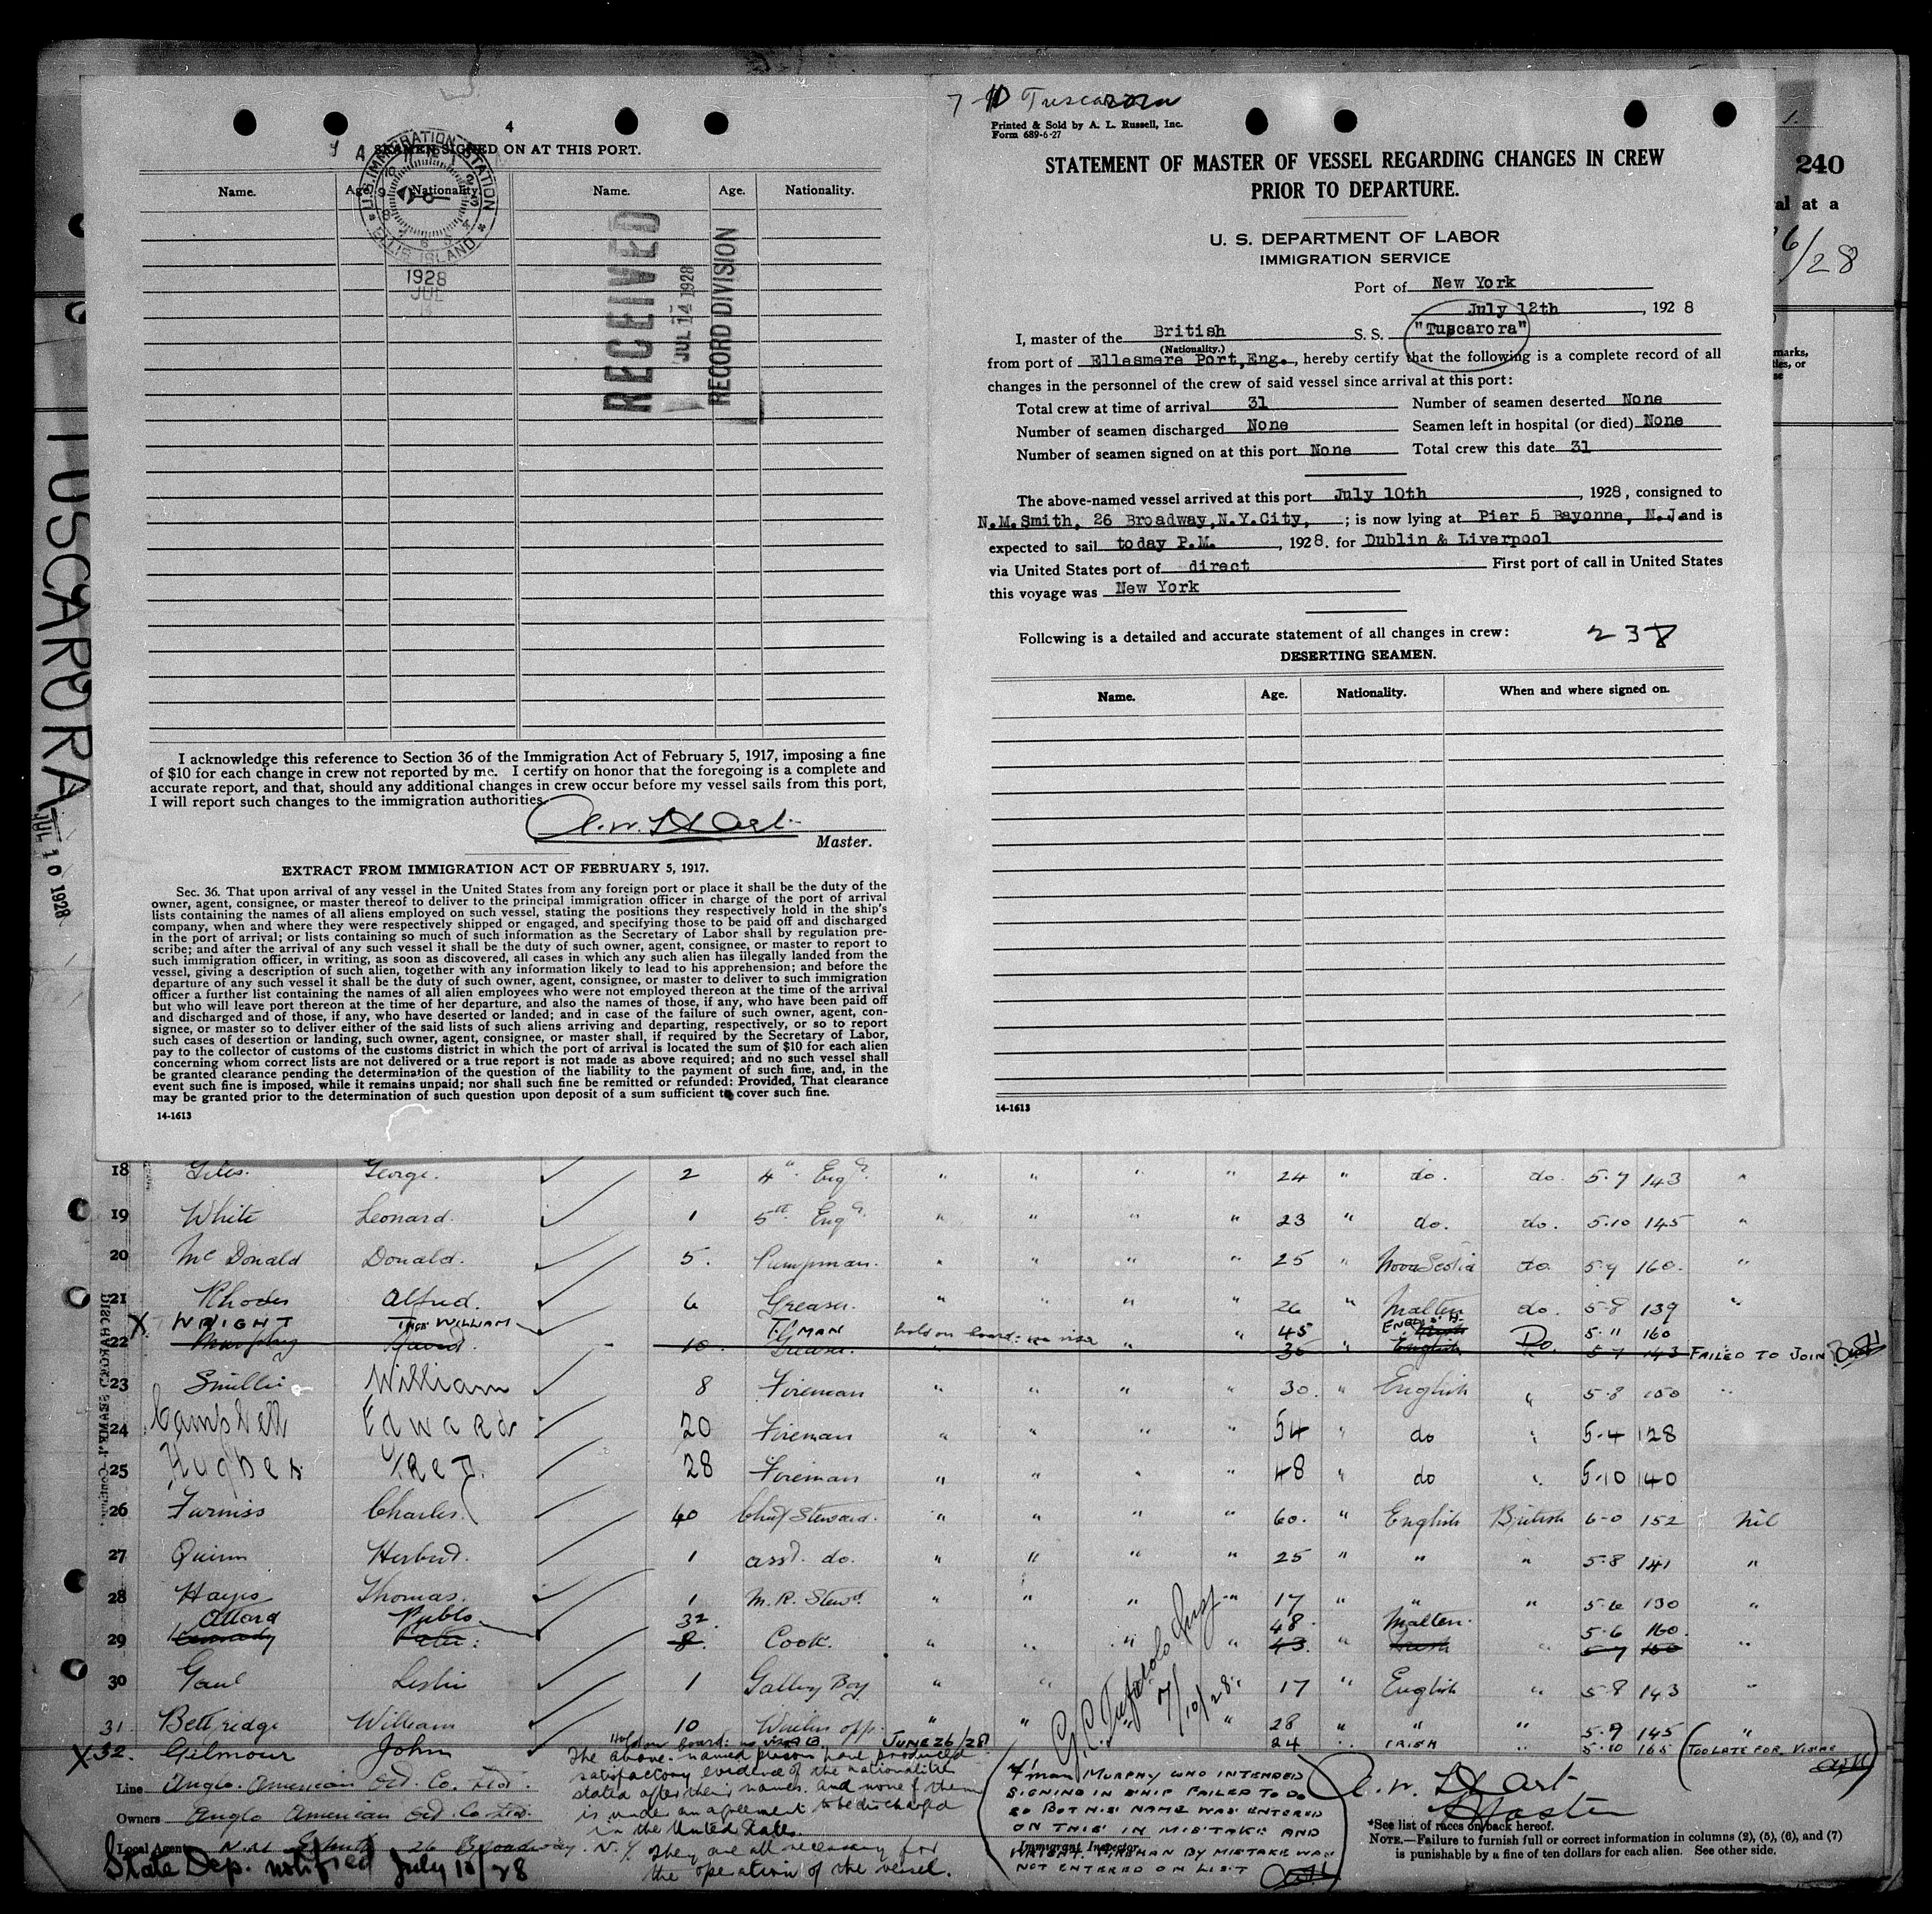 4
SEAMEN SIGNED ON AT THIS PORT.
Name. Age. Nationality. Name. Age. Nationality.
U.S. IMMIGRATION STATION
ELLIS ISLAND
1928
JUL
RECEIVED
JUL 14 1928
RECORD DIVISION
I acknowledge this reference to Section 36 of the Immigration Act of February 5, 1917, imposing a fine
of $10 for each change in crew not reported by me. I certify on honor that the foregoing is a complete and
accurate report, and that, should any additional changes in crew occur before my vessel sails from this port,
I will report such changes to the immigration authorities.
Master.
EXTRACT FROM IMMIGRATION ACT OF FEBRUARY 5, 1917.
Sec. 36. That upon arrival of any vessel in the United States from any foreign port or place it shall be the duty of the
owner, agent, consignee, or master thereof to deliver to the principal immigration officer in charge of the port of arrival
lists containing the names of all aliens employed on such vessel, stating the positions they respectively hold in the ship's
company, when and where they were respectively shipped or engaged, and specifying those to be paid off and discharged
in the port of arrival; or lists containing so much of such information as the Secretary of Labor shall by regulation pre-
scribe; and after the arrival of any such vessel it shall be the duty of such owner, agent, consignee, or master to report to
such immigration officer, in writing, as soon as discovered, all cases in which any such alien has illegally landed from the
vessel, giving a description of such alien, together with any information likely to lead to his apprehension; and before the
departure of any such vessel it shall be the duty of such owner, agent, consignee, or master to deliver to such immigration
officer a further list containing the names of all alien employees who were not employed thereon at the time of the arrival
but who will leave port thereon at the time of her departure, and also the names of those, if any, who have been paid off
and discharged and of those, if any, who have deserted or landed; and in case of the failure of such owner, agent, con-
signee, or master so to deliver either of the said lists of such aliens arriving and departing, respectively, or so to report
such cases of desertion or landing, such owner, agent, consignee, or master shall, if required by the Secretary of Labor,
pay to the collector of customs of the customs district in which the port of arrival is located the sum of $10 for each alien
concerning whom correct lists are not delivered or a true report is not made as above required; and no such vessel shall
be granted clearance pending the determination of the question of the liability to the payment of such fine, and, in the
event such fine is imposed, while it remains unpaid; nor shall such fine be remitted or refunded: Provided, That clearance
may be granted prior to the determination of such question upon deposit of a sum sufficient to cover such fine.
14-1613
Tuscarora
Printed & Sold by A. L. Russell, Inc.
Form 689-6-27
STATEMENT OF MASTER OF VESSEL REGARDING CHANGES IN CREW
PRIOR TO DEPARTURE.
U. S. DEPARTMENT OF LABOR
IMMIGRATION SERVICE
Port of New York
July 12th, 1928
I, master of the British S.S. "Tuscarora"
(Nationality.)
from port of Ellesmere Port,Eng., hereby certify that the following is a complete record of all
changes in the personnel of the crew of said vessel since arrival at this port:
Total crew at time of arrival 31 Number of seamen deserted None
Number of seamen discharged None Seamen left in hospital (or died) None
Number of seamen signed on at this port None Total crew this date 31
The above-named vessel arrived at this port July 10th, 1928, consigned to
N.M.Smith, 26 Broadway,N.Y.City, ; is now lying at Pier 5 Bayonne, N.J. and is
expected to sail today P.M., 1928. for Dublin & Liverpool
via United States port of direct First port of call in United States
this voyage was New York
Following is a detailed and accurate statement of all changes in crew: 238
DESERTING SEAMEN.
Name. Age. Nationality. When and where signed on.
14-1613
240
al at a
6/28
TUSCARORA
JUL 10 1928
18 Giles. George. 2 4th Engr. " " " " 24 " do. do. 5.7 143 "
19 White Leonard. 1 5th Engr. " " " " 23 " do. do. 5.10 145 "
20 McDonald Donald. 5. Pumpman. " " " " 25 " Nova Scotia do 5.9 160. "
21 Rhodes Alfred. 6 Greaser. " " " " 26 " Maltese do. 5.8 139 "
X WRIGHT WILLIAM F. MAN held on board: no visa 45 ENGLISH 5.11 160
22 Murphy David. 10. Greaser. " 36 English Do. 5.7 143 FAILED TO JOIN
23 Smillie William 8 Fireman " " " " 30. " English " 5.8 150 "
24 Campbell Edward 20 Fireman " " " " 54 " do " 5.4 128
25 Hughes Fred. 28 Fireman " " " " 48 " do " 5.10 140
26 Furniss Charles. 40 Chief Steward. " " " " 60. " English British 6-0 152 nil
27 Quinn Herbert. 1 asst. do. " " " " 25 " " " 5.8 141 "
28 Hayes Thomas. 1 M.R. Stewd. " " " " 17 " " " 5.6 130 "
Attard Publo 32 48 Maltese. 5.6 160.
29 Kennedy Peter. 8. Cook. " " " " 43. " Irish " 5.7 150 "
30 Gaul Leslie 1 Galley Boy " " " " 17 " English " 5.8 143 "
31. Bettridge William 10 Wireless opp. " " " 28 " " " 5.9 145 "
X 32. Gilmour John Held on board: no visa JUNE 26/28 24 IRISH 5.10 165 (TOO LATE FOR VISAING
7/10/28.
The above-named persons have produced
satisfactory evidence of the nationalities
stated after their names. And none of them
is under an agreement to be discharged
in the United States.
They are all necessary for
the operation of the vessel.
Line Anglo-American Oil. Co. Ltd.
Owners Anglo American Oil Co Ltd.
Local Agent N.M. Smith 26 Broadway. N.Y.
State Dep. notified July 10/28
F'man MURPHY WHO INTENDED
SIGNING IN SHIP FAILED TO DO
SO BUT HIS NAME WAS ENTERED
ON THIS IN MISTAKE AND
WRIGHT FIREMAN BY MISTAKE WAS
NOT ENTERED ON LIST
Immigrant Inspector.
Master
*See list of races on back hereof.
NOTE.—Failure to furnish full or correct information in columns (2), (5), (6), and (7)
is punishable by a fine of ten dollars for each alien. See other side.